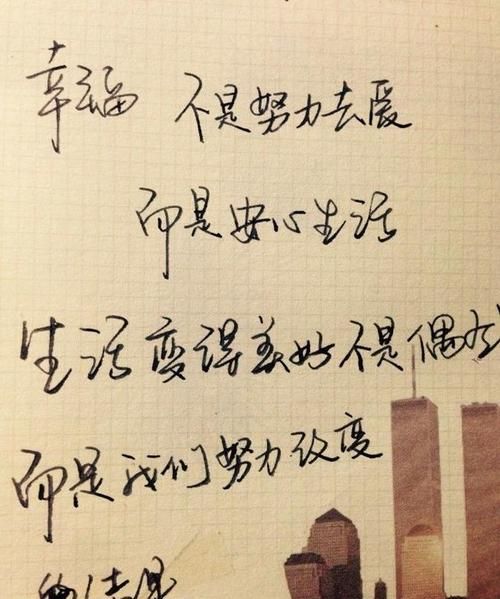 幸福 不是努力去爱
而是安心生活
生活变得美好不是偶然
而是我们努力改变
的结果